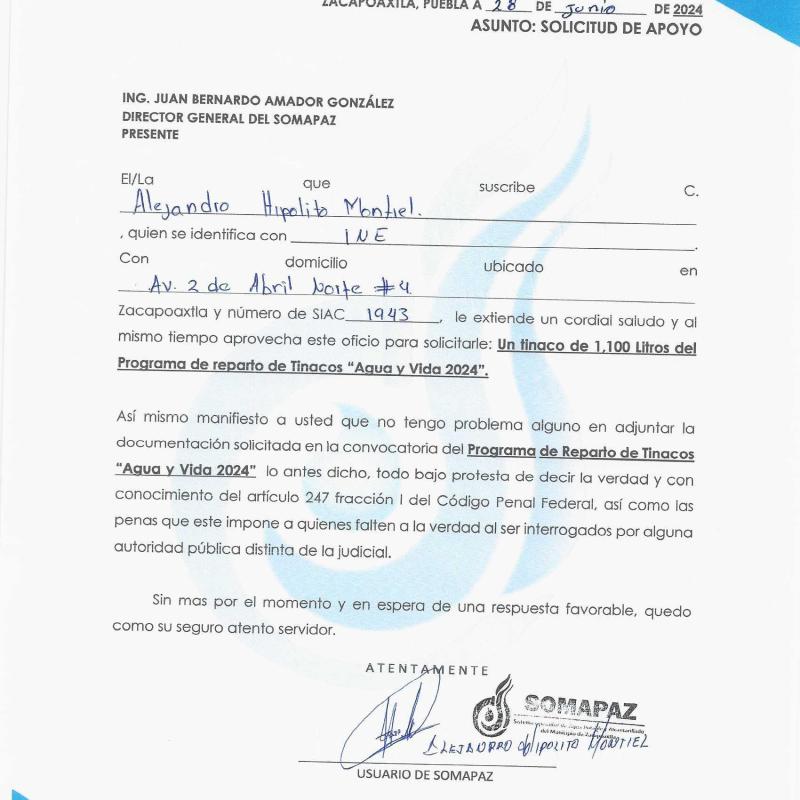 ZACAPOAXTLA, PUEBLA A 28 DE Junio DE 2024
ASUNTO: SOLICITUD DE APOYO
ING. JUAN BERNARDO AMADOR GONZÁLEZ
DIRECTOR GENERAL DEL SOMAPAZ
PRESENTE
El/La que suscribe C.
Alejandro Hipolito Montiel.
, quien se identifica con INE .
Con domicilio ubicado en
Av. 2 de Abril Norte #4
Zacapoaxtla y número de SIAC 1943 , le extiende un cordial saludo y al
mismo tiempo aprovecha este oficio para solicitarle: Un tinaco de 1,100 Litros del
Programa de reparto de Tinacos “Agua y Vida 2024”.
Así mismo manifiesto a usted que no tengo problema alguno en adjuntar la
documentación solicitada en la convocatoria del Programa de Reparto de Tinacos
“Agua y Vida 2024” lo antes dicho, todo bajo protesta de decir la verdad y con
conocimiento del artículo 247 fracción I del Código Penal Federal, así como las
penas que este impone a quienes falten a la verdad al ser interrogados por alguna
autoridad pública distinta de la judicial.
Sin mas por el momento y en espera de una respuesta favorable, quedo
como su seguro atento servidor.
ATENTAMENTE
SOMAPAZ
Sistema Operador de Agua Potable y Alcantarillado
del Municipio de Zacapoaxtla
ALEJANDRO HIPOLITO MONTIEL
USUARIO DE SOMAPAZ